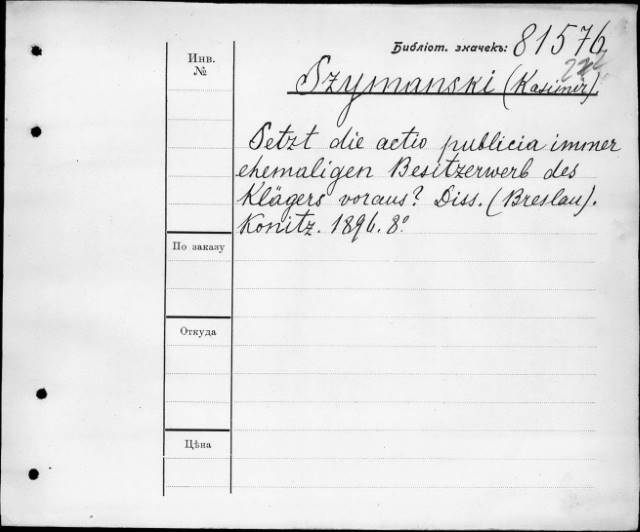 Библіот. значекъ: 81576
Инв. №
Szymanski (Kasimir).
Setzt die actio publicia immer
ehemaligen Besitzerwerb des
Klägers voraus? Diss. (Breslau).
Konitz. 1896. 8º
По заказу
Откуда
Цѣна